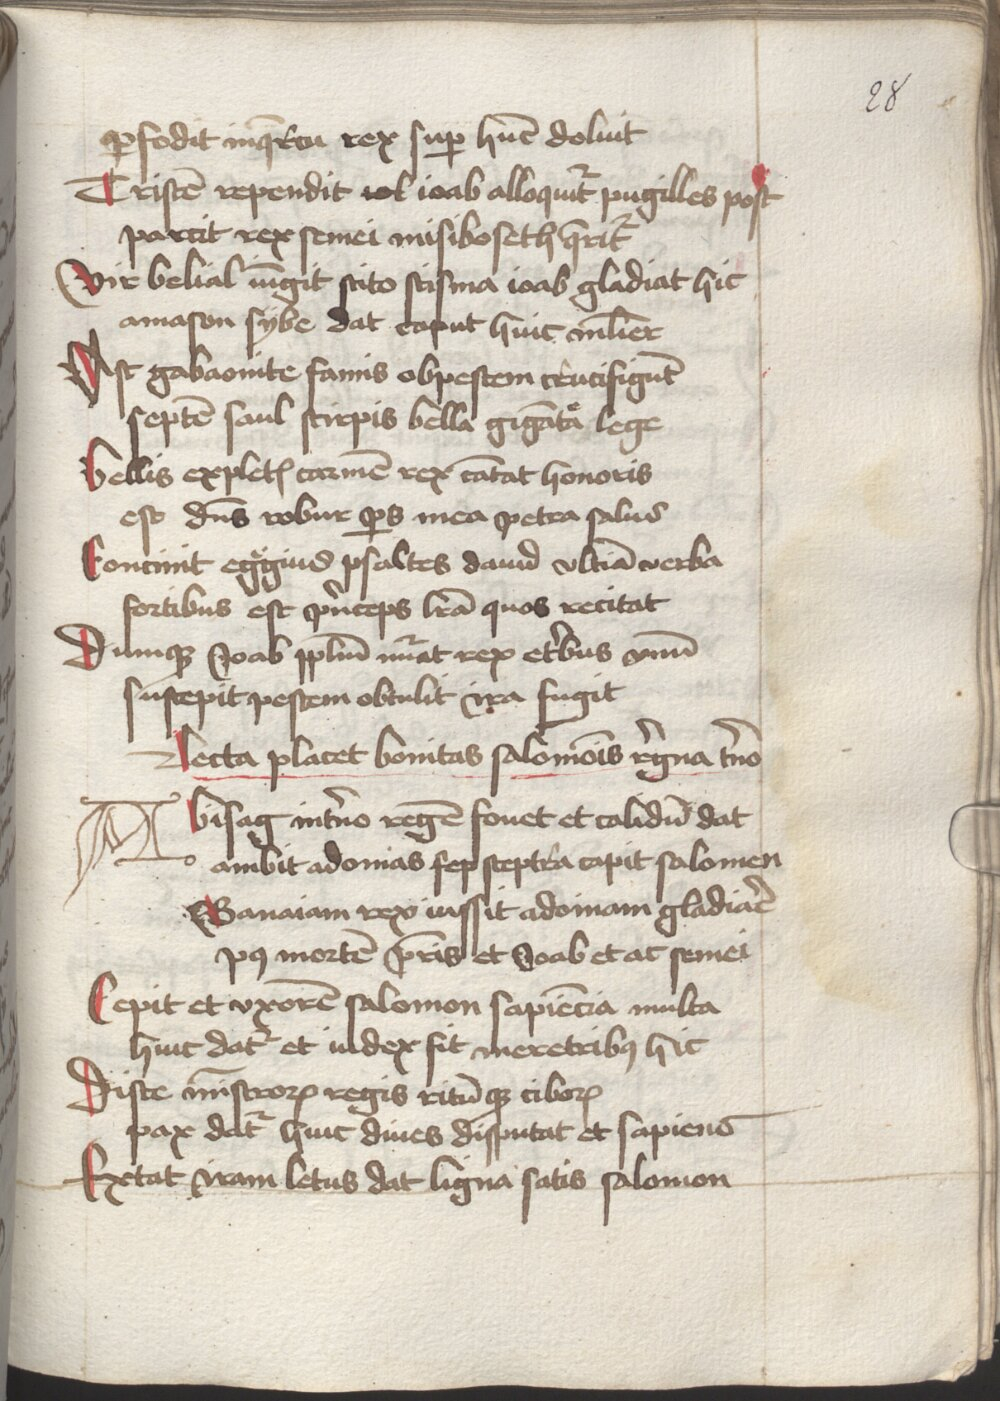 28
ꝑfodit inqͥrcu rex suꝑ hūc doluit
Tristē rependit iol ioab alloquitᷣ pugilles post
parcit rex semei misiboseth qͥritᷣ
Vir belial iūgit scito scisma ioab gladiat hic
amason sybe dat caput huic mlīer
Ast gabaonite famis obpestem crucifigūt
septē saul stirpis bella gigāta lege
bellis expletꝭ carmē rex cātat honoris
est dn̄s robur sꝑs mea petra salus
Concinit egͥgius psaltes dauid vltiā verba
fortibus est pͥnceps lrā quos recitat
Dumqꝫ Joab pplūm nūͣat rex etͥbus vnū
suscepit pestem obtulit ira fugit
Lecta placet bonitas salomōis rͤgna tͤno
Abisag intͤno regē fouet et calidū dat
ambit adonias sceptͣra capit salomen
Banaiam rex iussit adoniam gladiaͤ
pꝰ mortē pͣris et Joab et ac semei
Cepit et vxorē salomon sapiēcia multa
huic datᷣ et iudex fit meretribꝰ hic
Disce mīstroꝝ regis ritūqꝫ ciboꝝ
pax datᷣ huic diues disputat et sapiens
Extat iram letus dat ligna satis salomon